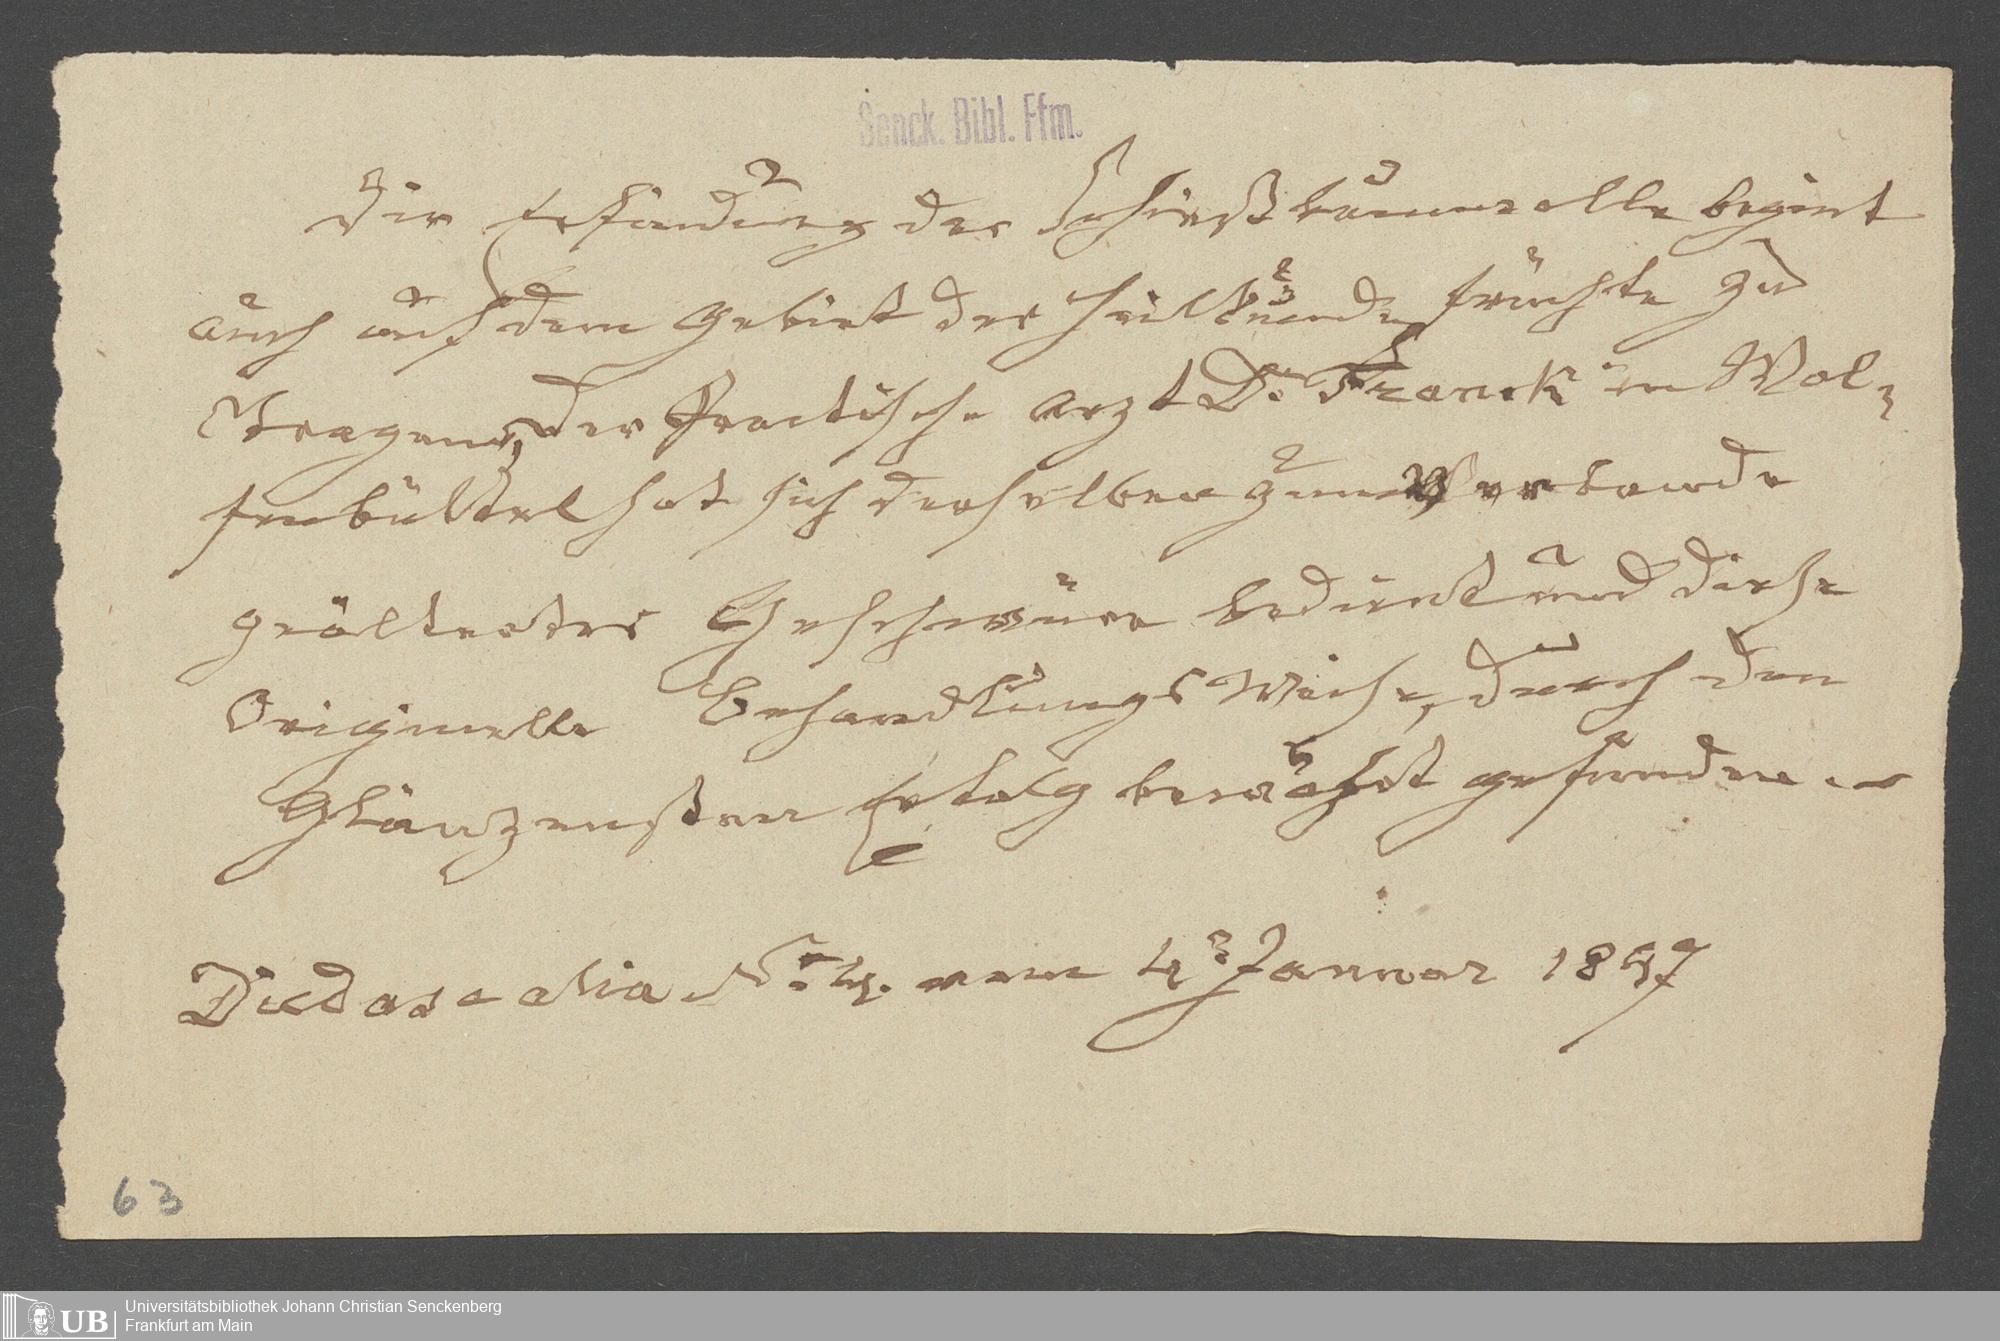 Senck. Bibl. Ffm.
Die Erfindung der Schießbaumwolle begint
auch auf dem Gebiet der Heilkunde früchte zu
Tragen, der Practische Arzt Dr. Franck in Wol-
fenbüttel hat sich derselben zum Verbande
geälterter Geschwüre bedient und diese
Originelle Behandlungs Weise, durch den
Glänzensten Erfolg bewährt gefunden
Didascalia Nr. 4. vom 4 Januar 1847
63
UB
Universitätsbibliothek Johann Christian Senckenberg
Frankfurt am Main